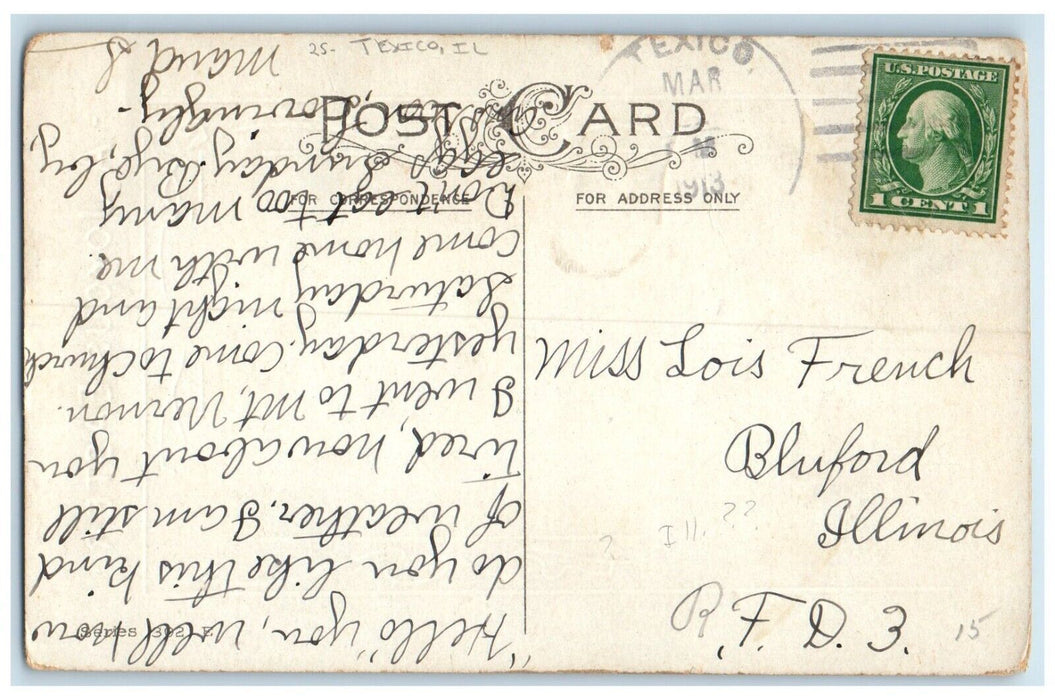 25- TEXICO, IL
TEXICO
MAR
M
1913
U.S. POSTAGE
1 CENT 1
POST CARD
FOR CORRESPONDENCE
FOR ADDRESS ONLY
Miss Lois French
Bluford
Illinois
R.F.D. 3.
? Ill. ??
15
Series 302 E
"Hello" you, well how
do you like this kind
of weather, I am still
tired, how about you
I went to Mt. Vernon.
yesterday, Come to Church
Saturday night and
come home with me.
Don't eat too many
eggs Sunday. Bye, by
Lovingly-
Maud S